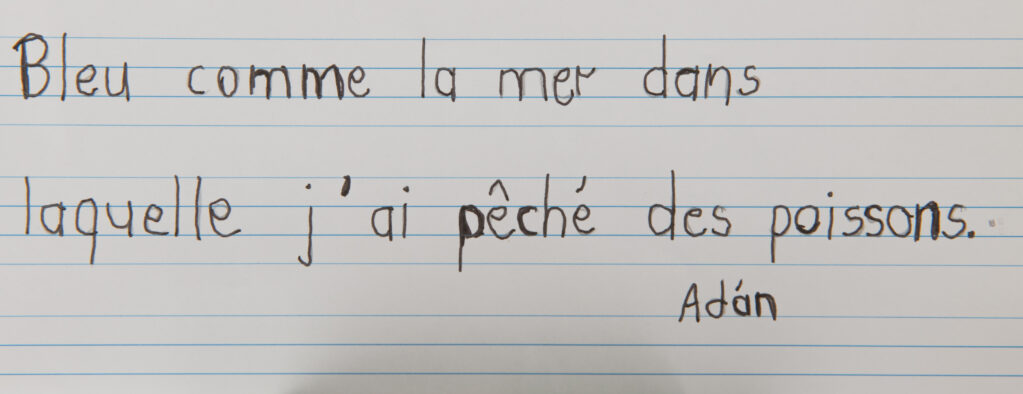 Bleu comme la mer dans
laquelle j'ai pêché des poissons.
Adán